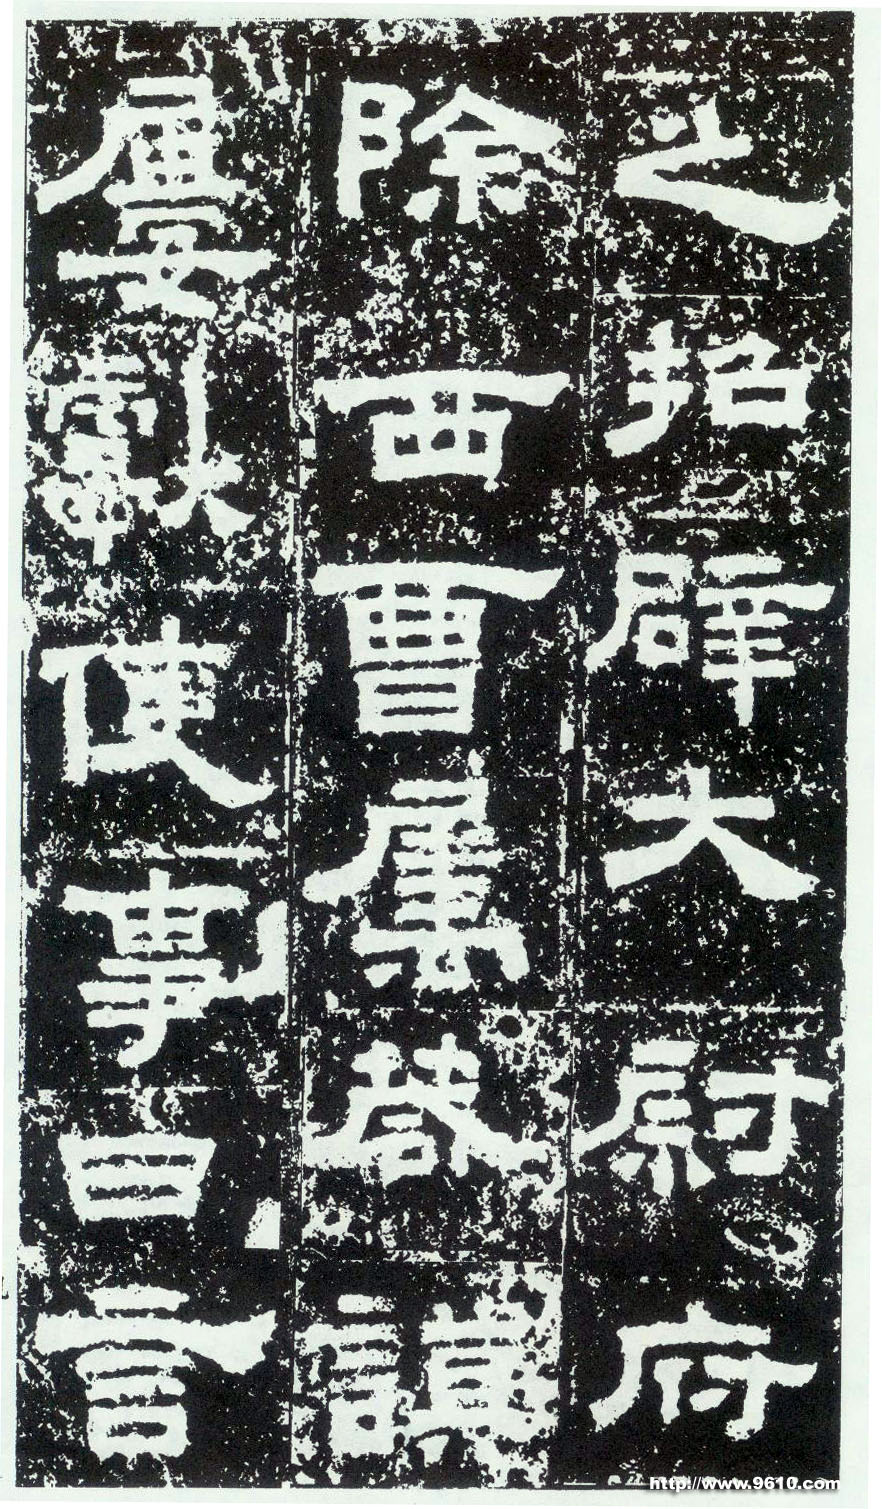 之招辟大尉府
除西曹屬謨
屢獻使事日言
http://www.9610.com